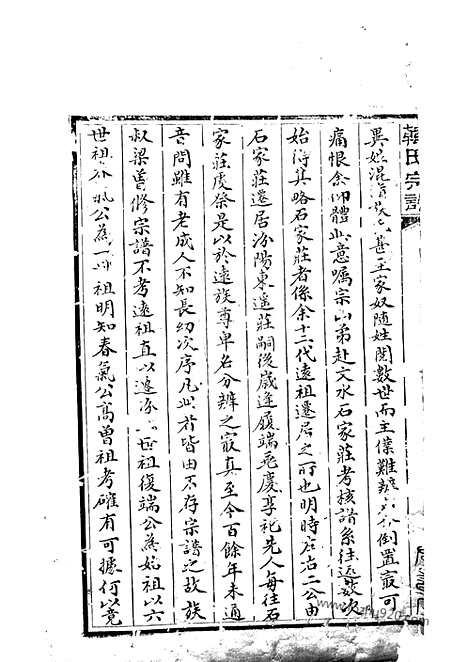 韓氏宗譜
異姓混宗甚至家奴隨姓閱數世而主僕難辨倒置最可
痛恨余仰體此意囑宗山弟赴文水石家莊考核譜系往返數次
始得其略石家莊者係余十二代遠祖遷居之所也明時在沾二公由
石家莊遷居汾陽東遥莊嗣後歲逢履端飛慶享祀先人每往石
家莊虔祭是以於遠族尊卑名分辨之最真至今百餘年未通
音問雖有老成人不知長幼次序凡此者皆由不存宗譜之故族
叔梁曾修宗譜不考遠祖直以遷汾世祖復端公為始祖以六
世祖公為一世祖明知春氣公高曾祖考確有可據何以竟